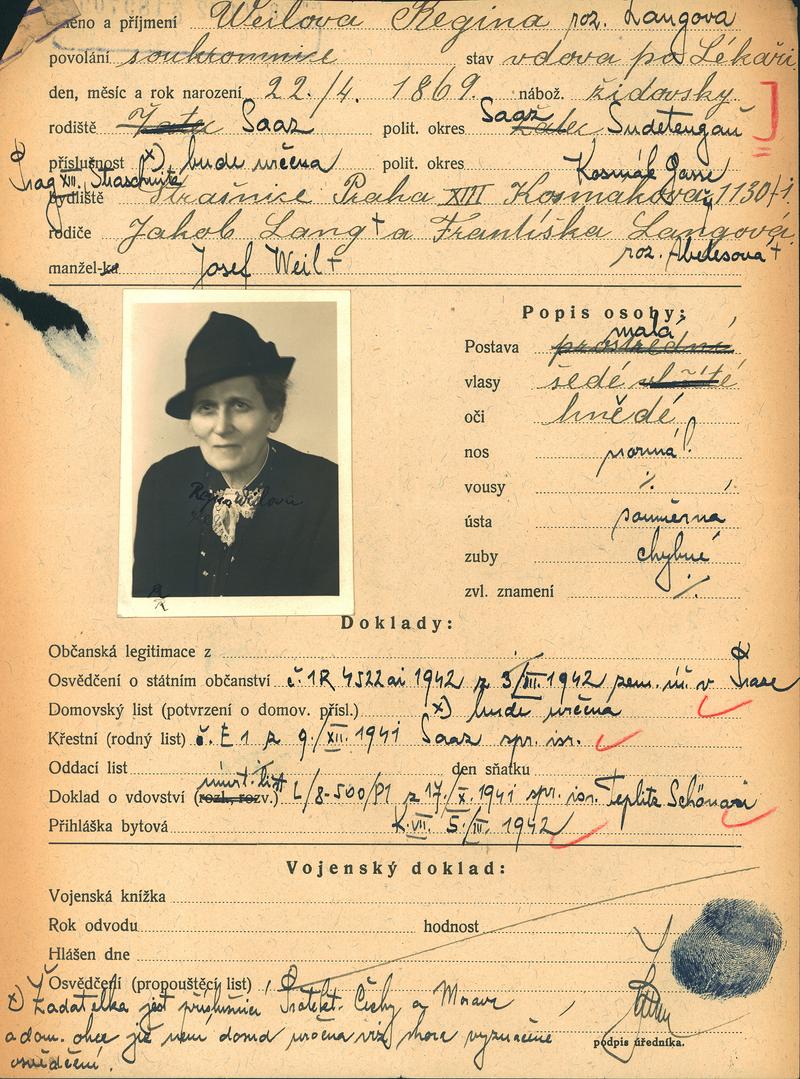 jméno a příjmení Weilova Regina roz. Langova
povolání soukromnice stav vdova po Lékaři
den, měsíc a rok narození 22./4. 1869. nábož. židovsky
rodiště Žatec Saaz polit. okres Saaz Žatec, Sudetengau
příslušnost x) bude určena polit. okres
Prag XIII. Straschnitz Kosmák Gasse
bydliště Strašnice Praha XIII Kosmakova 1130/1
rodiče Jakob Lang † a Františka Langová
roz. Abelesova †
manžel-ka Josef Weil †
Popis osoby:
malá
Postava prostřední
vlasy šedé
oči hnědé
nos normál
vousy ⁒
ústa souměrna
zuby chybné
zvl. znamení ⁒
Regina Weilová
Doklady:
Občanská legitimace z
Osvědčení o státním občanství č. 1R 4522 ai 1942 z 3/III. 1942 zem. úř. v Praze
Domovský list (potvrzení o domov. přísl.) x) bude určena
Křestní (rodný list) č. E 1 z 9./XII. 1941 Saaz spr. isr.
Oddací list den sňatku
úmrt. list
Doklad o vdovství (rozl., rozv.) L/8-500/P1 z 17./X. 1941 spr. isr. Teplitz Schönau
Přihláška bytová K. VII. 5./III. 1942
Vojenský doklad:
Vojenská knížka
Rok odvodu hodnost
Hlášen dne
Osvědčení (propouštěcí list)
x) Žadatelka jest příslušnicí Protekt. Čechy a Morava
a dom. obce již není domd určena viz shora vyznačené
osvědčení.
podpis úředníka.